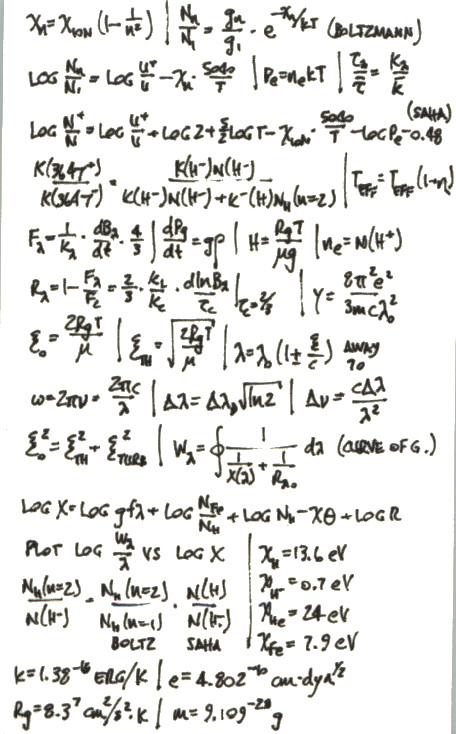 χₙ = χ_ION (1 - 1/n²) | Nₙ/N₁ = gₙ/g₁ · e^(-χₙ/kT) (BOLTZMANN)
LOG Nₙ/N₁ = LOG u⁺/u - χₙ · 5040/T | Pe = nekT | τ_λ/τ = K_λ/K
(SAHA)
LOG N⁺/N = LOG u⁺/u + LOG 2 + 5/2 LOG T - χ_ION · 5040/T - LOG Pe - 0.48
K(364⁺)/K(364⁻) = K(H⁻)N(H⁻) / K(H⁻)N(H⁻) + K⁻(H)N_H(n=2) | T_EFF = T_EFF (1+η)
F_λ = 1/K_λ · dB_λ/dt · 4/3 | dPg/dt = gρ | H = RgT/μg | ne = N(H⁺)
R_λ = 1 - F_λ/F_c = 2/3 · K_L/K_c · dlnB_λ/τ_c |_τ=2/3 | γ = 8π²e²/3mcλ₀²
ξ₀ = 2RgT/μ | ξ_TH = √(2RgT/μ) | λ = λ₀ (1 ± ξ/c) AWAY TO
ω = 2πν = 2πc/λ | Δλ = Δλ_D √ln2 | Δν = cΔλ/λ²
ξ₀² = ξ²_TH + ξ²_TURB | W_λ = ∮ 1 / (1/X(λ) + 1/R_λ₀) dλ (CURVE OF G.)
LOG X = LOG gfλ + LOG N_Fe/N_H + LOG N_H - χθ + LOG R
PLOT LOG W_λ/λ VS LOG X | χ_H = 13.6 eV
χ_H⁻ = 0.7 eV
N_H(n=2)/N(H⁻) = N_H(n=2)/N_H(n=1) · N(H)/N(H⁻) | χ_He = 24 eV
BOLTZ SAHA | χ_Fe = 7.9 eV
k = 1.38⁻¹⁶ ERG/K | e = 4.802⁻¹⁰ cm·dyn^½
Rg = 8.3⁷ cm²/s²·K | m = 9.109⁻²⁸ g